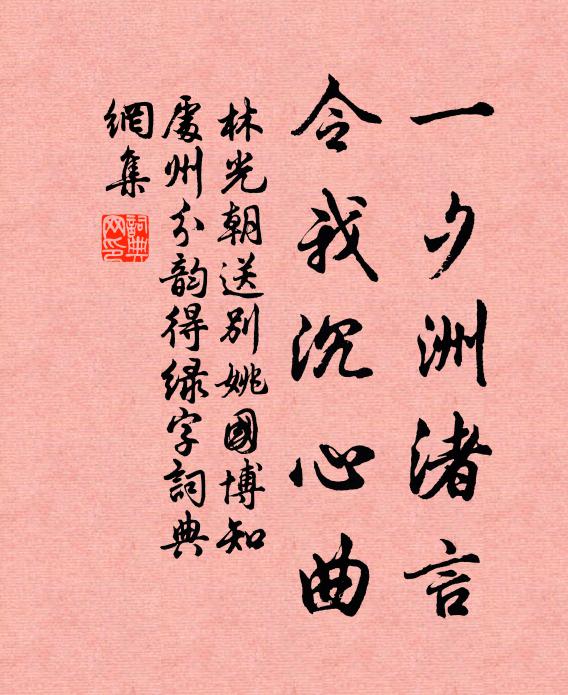 一夕洲渚言
令我沉心曲
林光朝送别姚國博知
處州分韵得緑字詞典
網集
詞典
网印